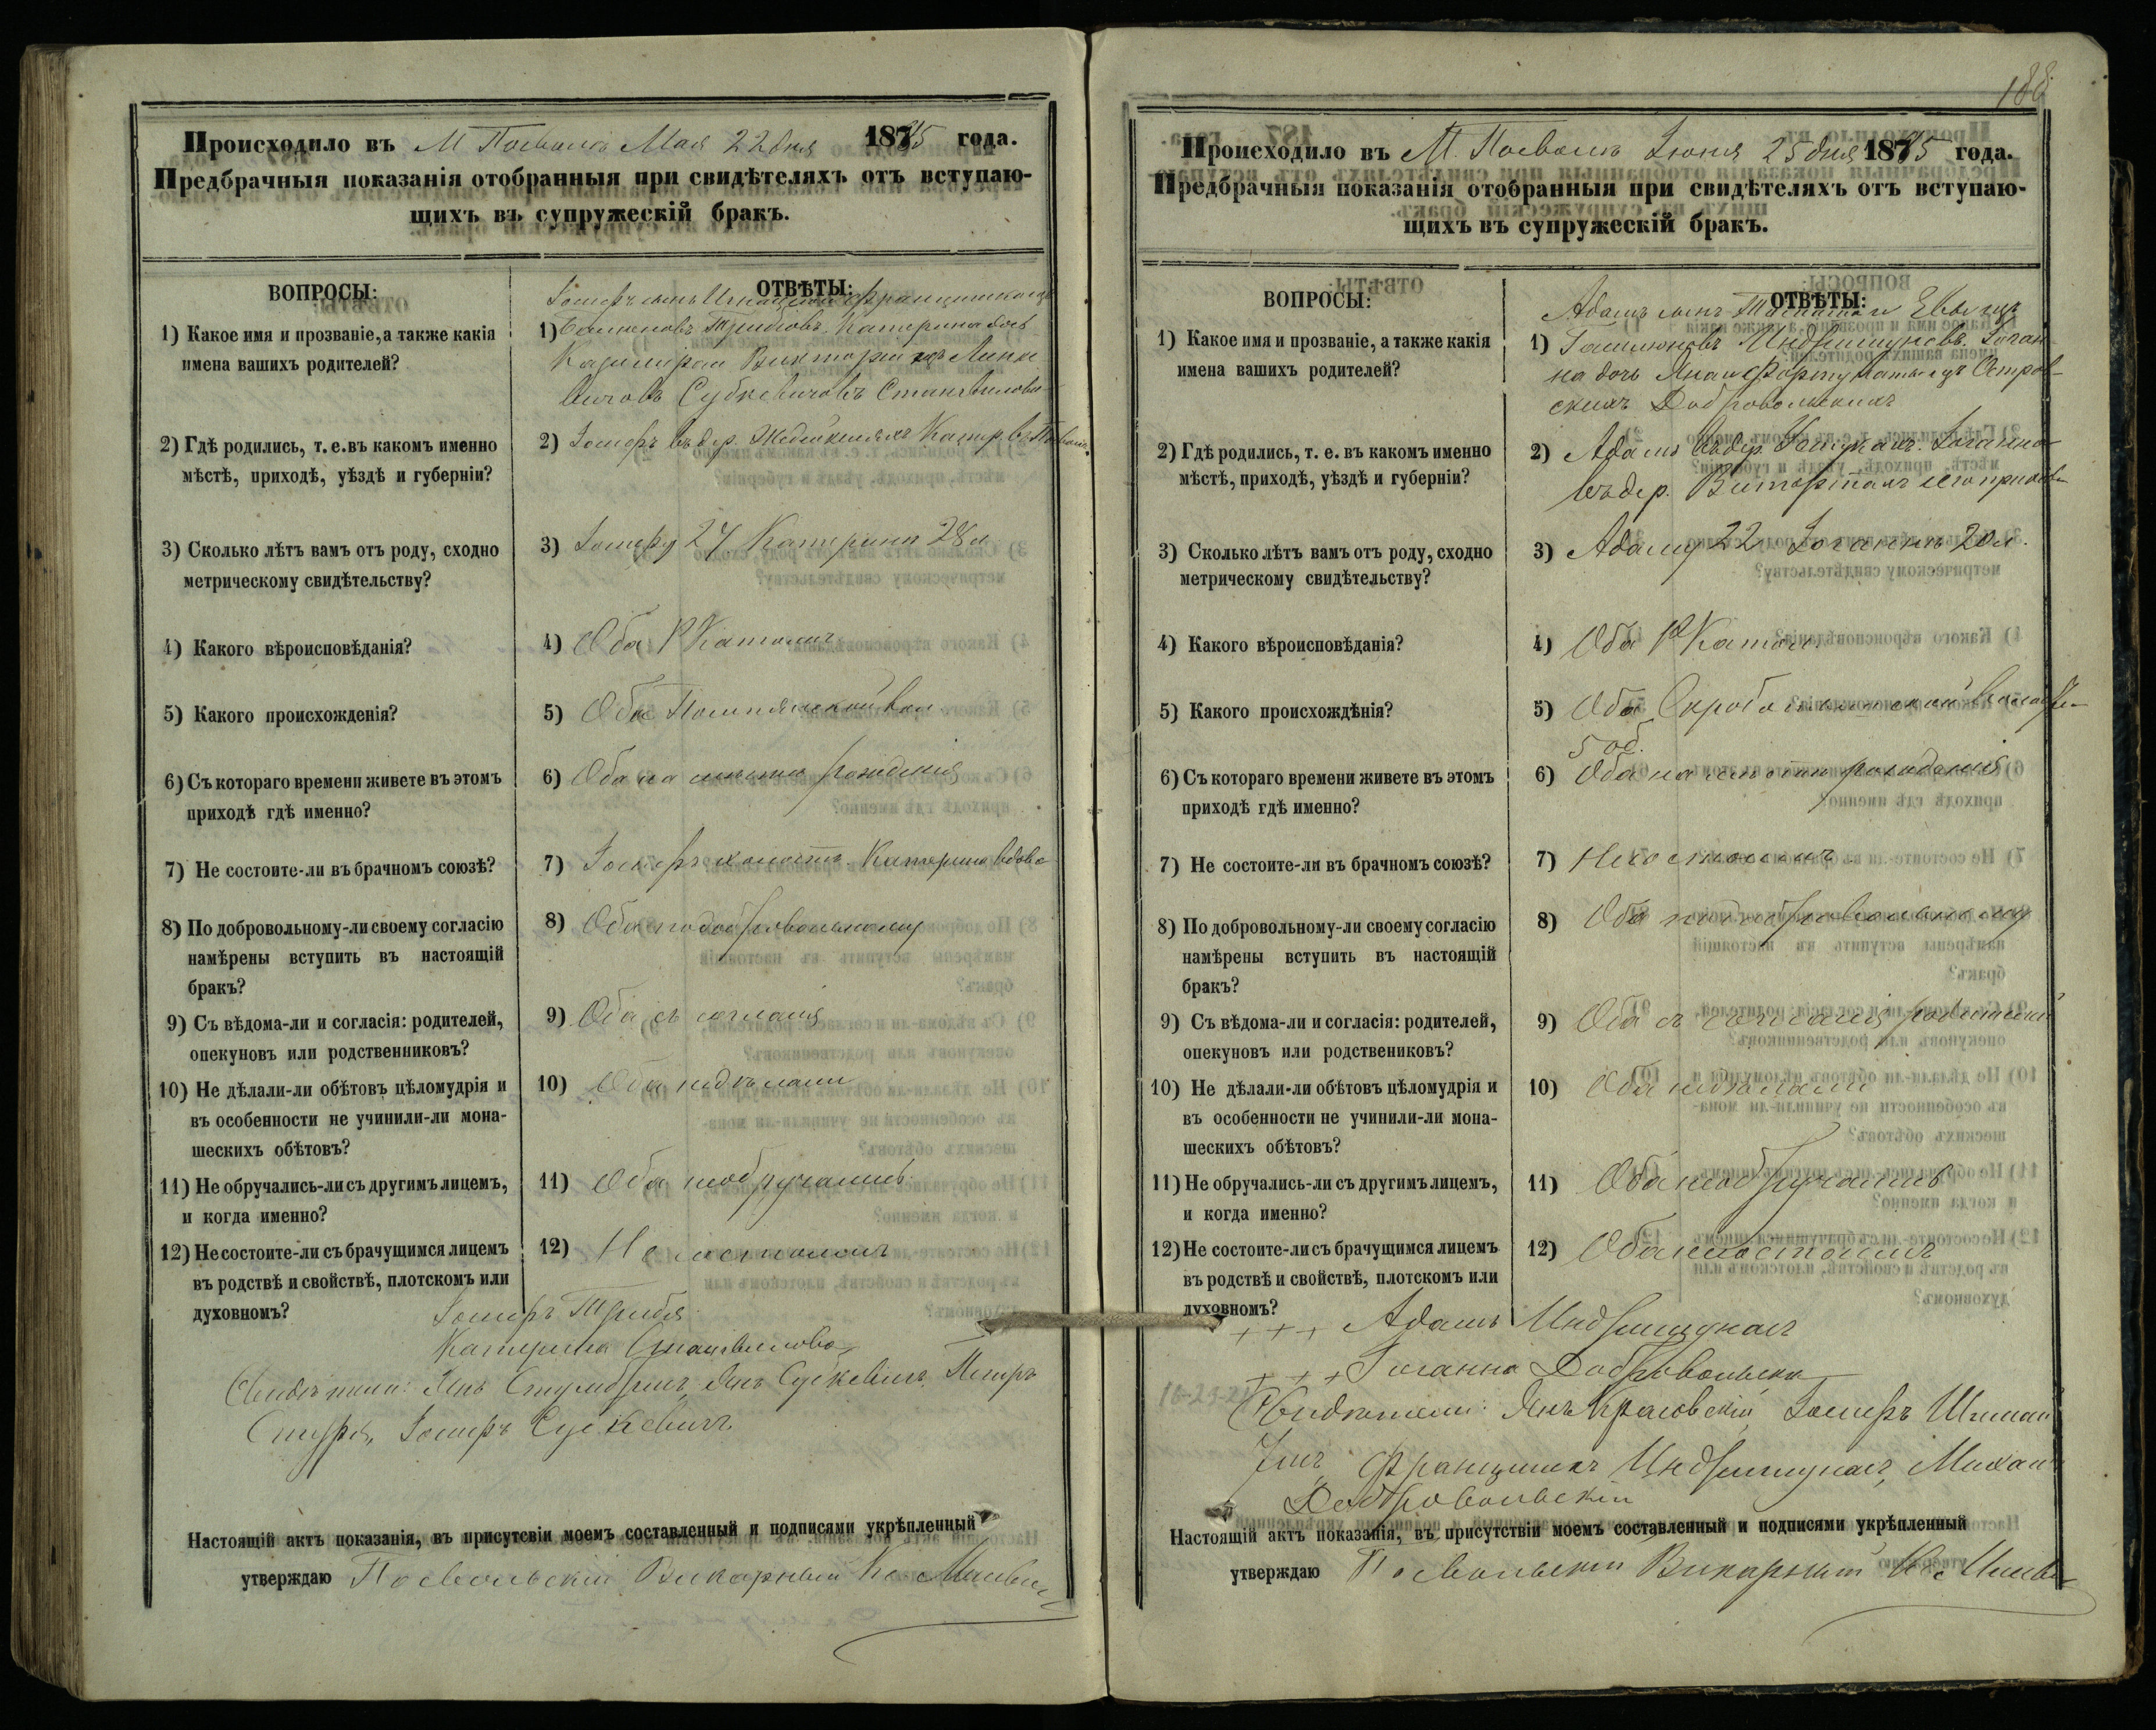 Происходило въ М Посволь Мая 22 дня 1885 года.
Предбрачныя показанія отобранныя при свидѣтеляхъ отъ вступаю-
щихъ въ супружескій бракъ.
ВОПРОСЫ:
ОТВѢТЫ:
1) Какое имя и прозваніе, а также какія
имена вашихъ родителей?
Іосифъ сынъ Игнація и Францишки изъ
1) Трибовъ Катерина дочь
Казимира и Викторіи изъ
Суткевичовъ Станкевичова
2) Гдѣ родились, т. е. въ какомъ именно
мѣстѣ, приходѣ, уѣздѣ и губерніи?
2) Іосифъ въ дер. Катер въ
3) Сколько лѣтъ вамъ отъ роду, сходно
метрическому свидѣтельству?
3) Іосифу 24 Катеринѣ 28 л
4) Какого вѣроисповѣданія?
4) Оба Р Католик
5) Какого происхожденія?
5) Оба вол.
6) Съ котораго времени живете въ этомъ
приходѣ гдѣ именно?
6) Оба на мѣстѣ рожденія
7) Не состоите-ли въ брачномъ союзѣ?
7) Іосифъ холостъ Катерина вдова
8) По добровольному-ли своему согласію
намѣрены вступить въ настоящій
бракъ?
8) Оба по добровольному
9) Съ вѣдома-ли и согласія: родителей,
опекуновъ или родственниковъ?
9) Оба съ согласія
10) Не дѣлали-ли обѣтовъ цѣломудрія и
въ особенности не учинили-ли мона-
шескихъ обѣтовъ?
10) Оба недѣлали
11) Не обручались-ли съ другимъ лицемъ,
и когда именно?
11) Оба необручались
12) Не состоите-ли съ брачущимся лицемъ
въ родствѣ и свойствѣ, плотскомъ или
духовномъ?
12) Несостоимъ
Іосифъ Триба
Катерина
Свидѣтели: Янъ Янъ Суткевичъ Петръ
Іосифъ Суткевичъ
Настоящій актъ показанія, въ присутсвіи моемъ составленный и подписями укрѣпленный
утверждаю Посвольскій Викарный Кс
188
Происходило въ М. Посволь Іюня 25 дня 1885 года.
Предбрачныя показанія отобранныя при свидѣтеляхъ отъ вступаю-
щихъ въ супружескій бракъ.
ВОПРОСЫ:
ОТВѢТЫ:
1) Какое имя и прозваніе, а также какія
имена вашихъ родителей?
Адамъ сынъ и Евы изъ
1) Индришуновъ. Іоган-
на дочь Яна и Фортунаты изъ Остров-
скихъ Добровольскихъ
2) Гдѣ родились, т. е. въ какомъ именно
мѣстѣ, приходѣ, уѣздѣ и губерніи?
2) Адамъ въ дер. Іоганна
въ дер. сего прихода
3) Сколько лѣтъ вамъ отъ роду, сходно
метрическому свидѣтельству?
3) Адаму 22 Іоганнѣ 20 л.
4) Какого вѣроисповѣданія?
4) Оба Р Катол.
5) Какого происхождѣнія?
5) Оба
6) Съ котораго времени живете въ этомъ
приходѣ гдѣ именно?
6) Оба на мѣстѣ рожденія
7) Не состоите-ли въ брачномъ союзѣ?
7) Несостоимъ
8) По добровольному-ли своему согласію
намѣрены вступить въ настоящій
бракъ?
8) Оба по добровольному
9) Съ вѣдома-ли и согласія: родителей,
опекуновъ или родствениковъ?
9) Оба съ согласія родителей
10) Не дѣлали-ли обѣтовъ цѣломудрія и
въ особенности не учинили-ли мона-
шескихъ обѣтовъ?
10) Оба недѣлали
11) Не обручались-ли съ другимъ лицемъ,
и когда именно?
11) Оба необручались
12) Не состоите-ли съ брачущимся лицемъ
въ родствѣ и свойствѣ, плотскомъ или
духовномъ?
12) Оба несостоимъ
+ + + Адамъ Индришунасъ
+ + + Іоганна Добровольска
Свидѣтели: Янъ Красовскій Іосифъ
Францишекъ Индришунасъ, Михаил
Добровольскій
Настоящій актъ показанія, въ присутствіи моемъ составленный и подписями укрѣпленный
утверждаю Посвольскій Викарный Кс